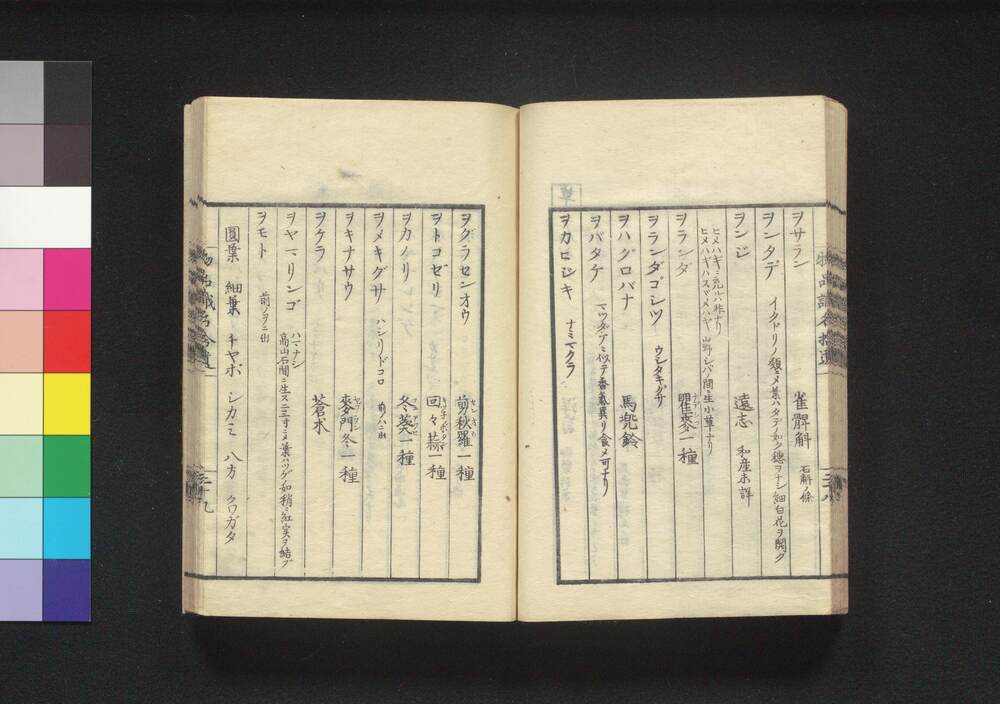 ヲサラン 雀髀斛 石斛ノ條
ヲンタデ イタドリノ類ニメ葉ハタデノ如ク穗ヲナシ細白花ヲ開ク
ヲンジ 遠志 和産未詳
ヒメハギニ充ルハ非ナリ
ヒメハギハスヾメハギ 山野シバノ間ニ生小草ナリ
ヲランダ 瞿麥一種
ヲランダゴシツ ウシタキグサ
ヲハグロバナ 馬兜鈴
ヲバタケ マツダケニ似テ香氣異リ食メ可ナリ
ヲカヒジキ ナミマクラ
ヲグラセンオウ 剪秋羅一種
ヲトコゼリ 回々蒜一種
ヲカノリ 冬葵一種
ヲメキグサ ハシリドコロ 前ノハニ出
ヲキナサウ 麥門冬一種
ヲケラ 蒼朮
ヲヤマリンゴ ハマナシ
高山石間ニ生ス二三寸ニメ葉ハツゲノ如稍ニ紅実ヲ結ブ
ヲモト 前ノヲニ出
圓葉 細葉 チヤボ シカミ 八方 クワガタ